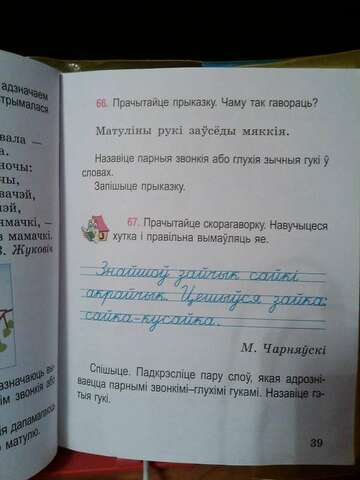 адзначаем
трымалася
вала —
а.
ночы:
чы,
вачэй,
чэй,
мачкі, —
в мамачкі.
В. Жуковіч
азначаюць вы-
ім звонкія або
ія дапамагаюць
ю матулю.
66. Прачытайце прыказку. Чаму так гавораць?
Матуліны рукі заўсёды мяккія.
Назавіце парныя звонкія або глухія зычныя гукі ў
словах.
Запішыце прыказку.
67. Прачытайце скорагаворку. Навучыцеся
хутка і правільна вымаўляць яе.
Знайшоў зайчык сайкі
акрайчык. Цешыўся зайка:
сайка-кусайка.
М. Чарняўскі
Спішыце. Падкрэсліце пару слоў, якая адрозні-
ваецца парнымі звонкімі–глухімі гукамі. Назавіце гэ-
тыя гукі.
39